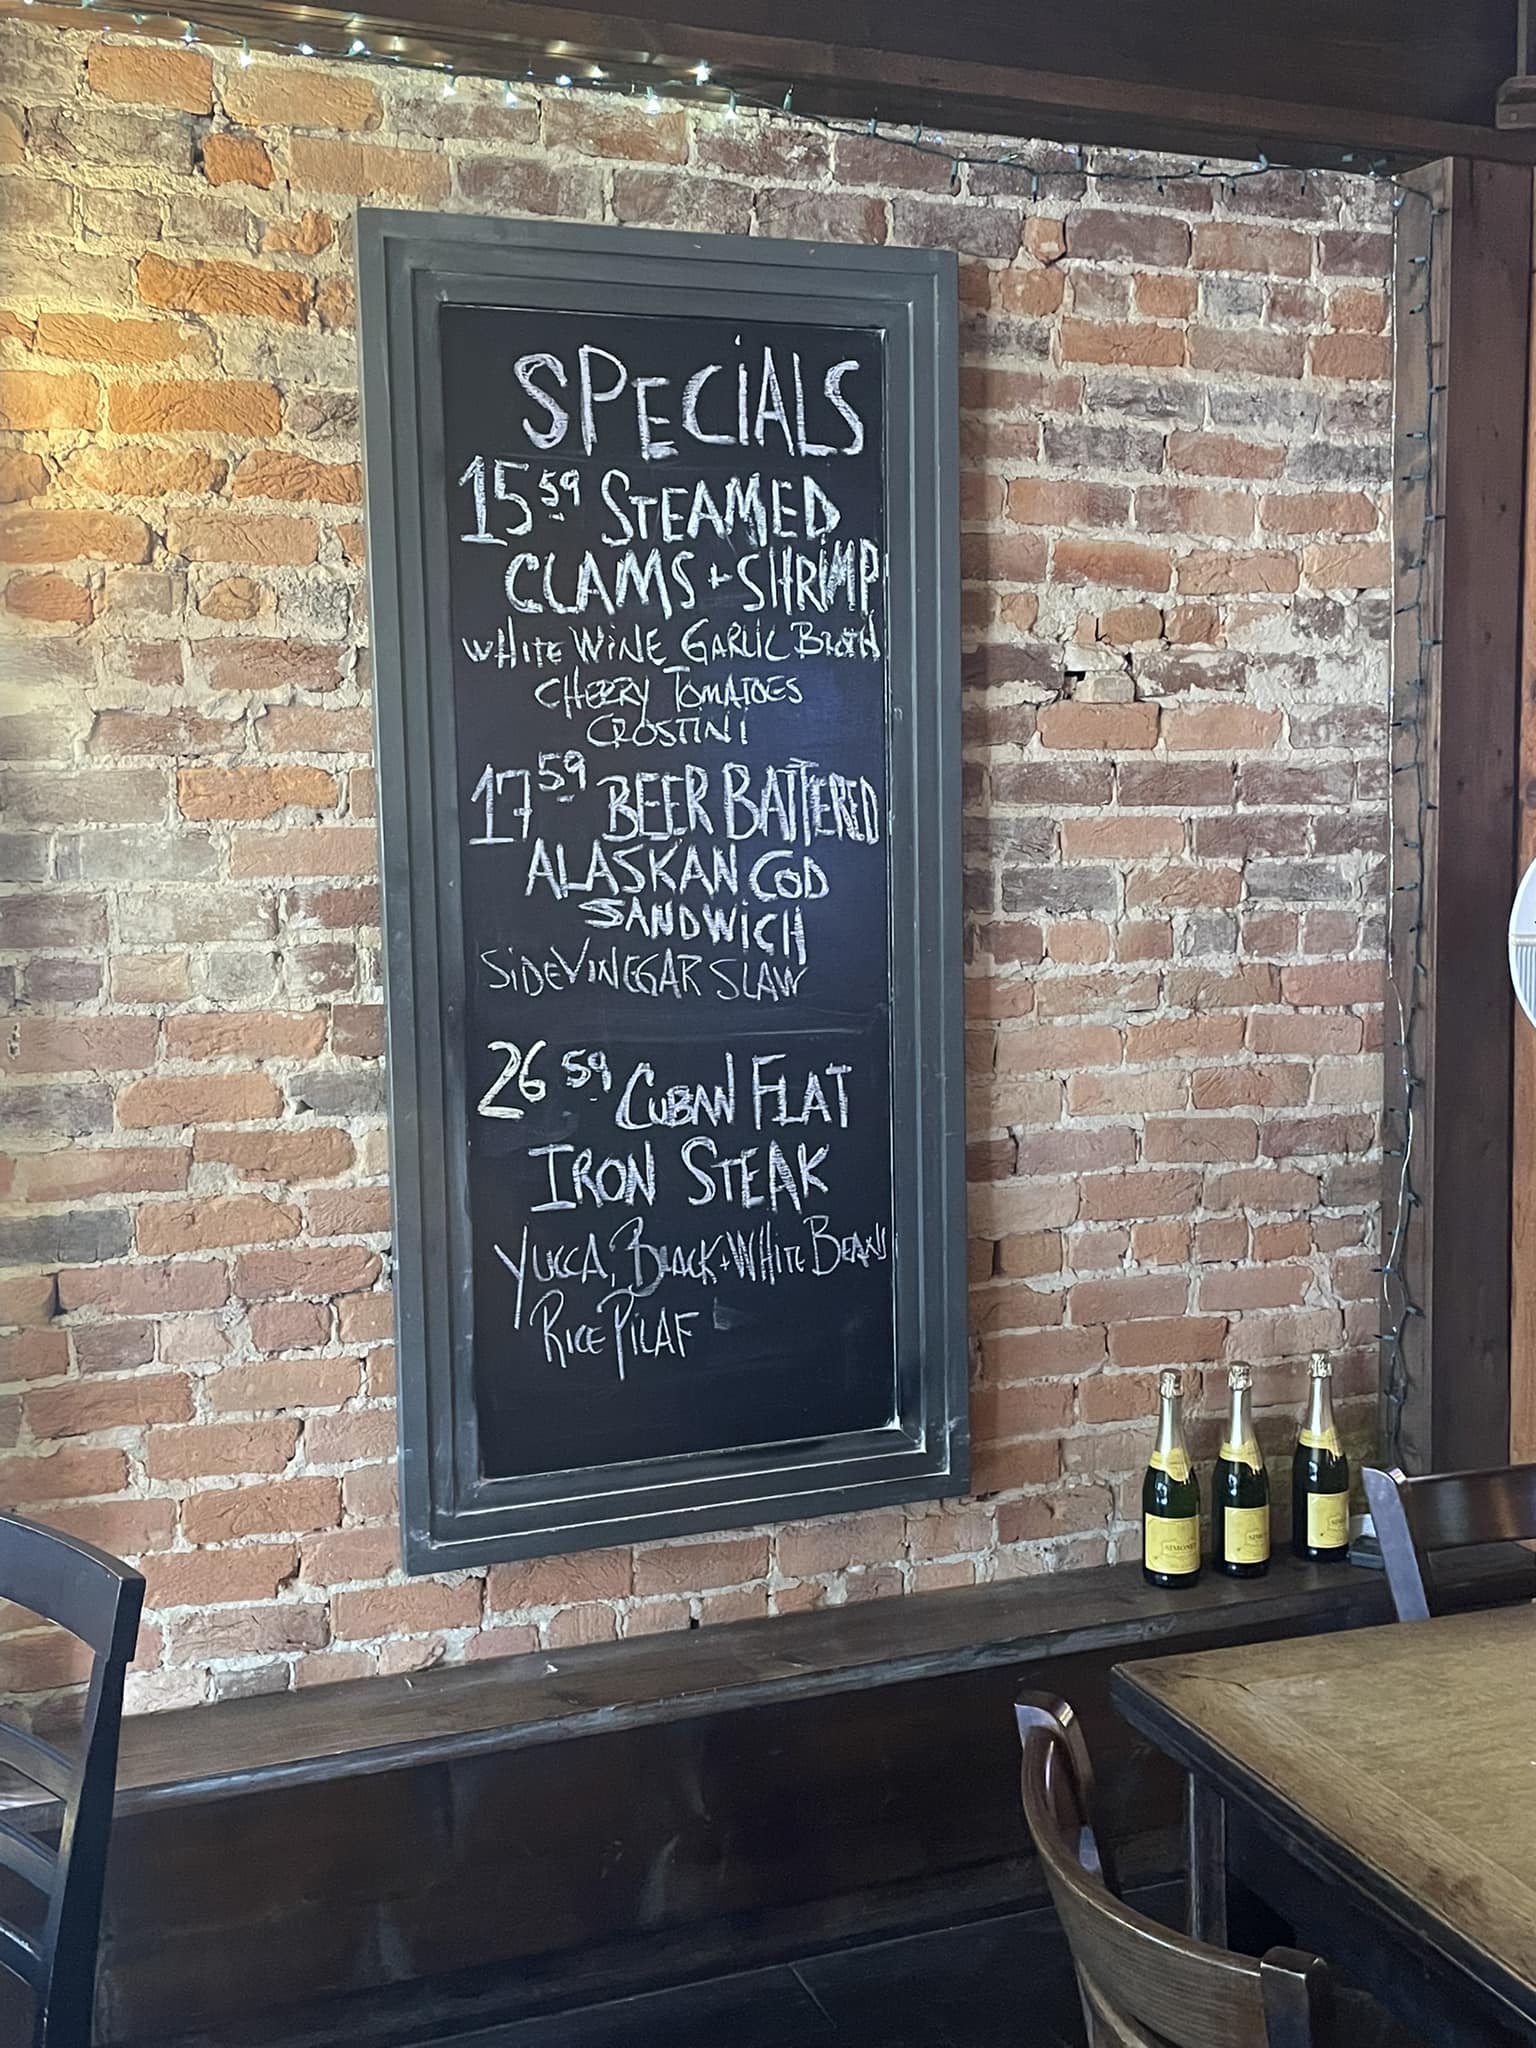 SPECiALS
15 59 STEAMED
CLAMS + SHRiMP
WHITE WiNE GARLIC BROTH
CHERRY TOMATOES
CROSTINI
17 59 BEER BATTERED
ALASKAN COD
SANDWiCH
SiDE ViNEGAR SLAW
26 59 CUBAN FLAT
IRON STEAK
YUCCA, BLACK + WHiTE BEANS
RiCE PiLAF
SIMONET